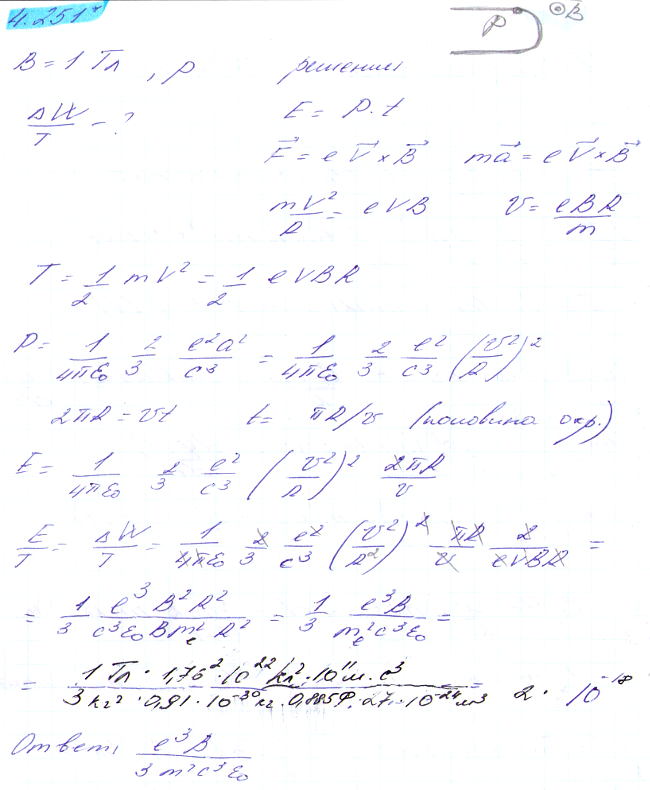 4.251*
P ⊙B
B = 1 Тл , p решение
ΔW/T - ? E = P·t
F⃗ = e V⃗ × B⃗ ma⃗ = e V⃗ × B⃗
mV²/R = eVB v = eBR/m
T = 1/2 mV² = 1/2 eVBR
P = 1/4πε₀ 2/3 e²a²/c³ = 1/4πε₀ 2/3 e²/c³ (v²/R)²
2πR = vt t = πR/v (половина окр.)
E = 1/4πε₀ 2/3 e²/c³ (v²/R)² 2πR/v
E/T = ΔW/T = 1/4πε₀ 2/3 e²/c³ (v²/R²)² πR/v 2/eVBR =
= 1/3 e³B²R²/c³ε₀Bm²ₑR² = 1/3 e³B/m²ₑc³ε₀ =
= 1 Тл · 1,76² · 10²² /кг² · 10¹¹ м · с³ / 3 кг² · 0,91 · 10⁻³⁰ кг · 0,885Ф · 27 · 10⁻²⁴ м³ = 2 · 10⁻¹⁸
Ответ: e³B/3m²c³ε₀